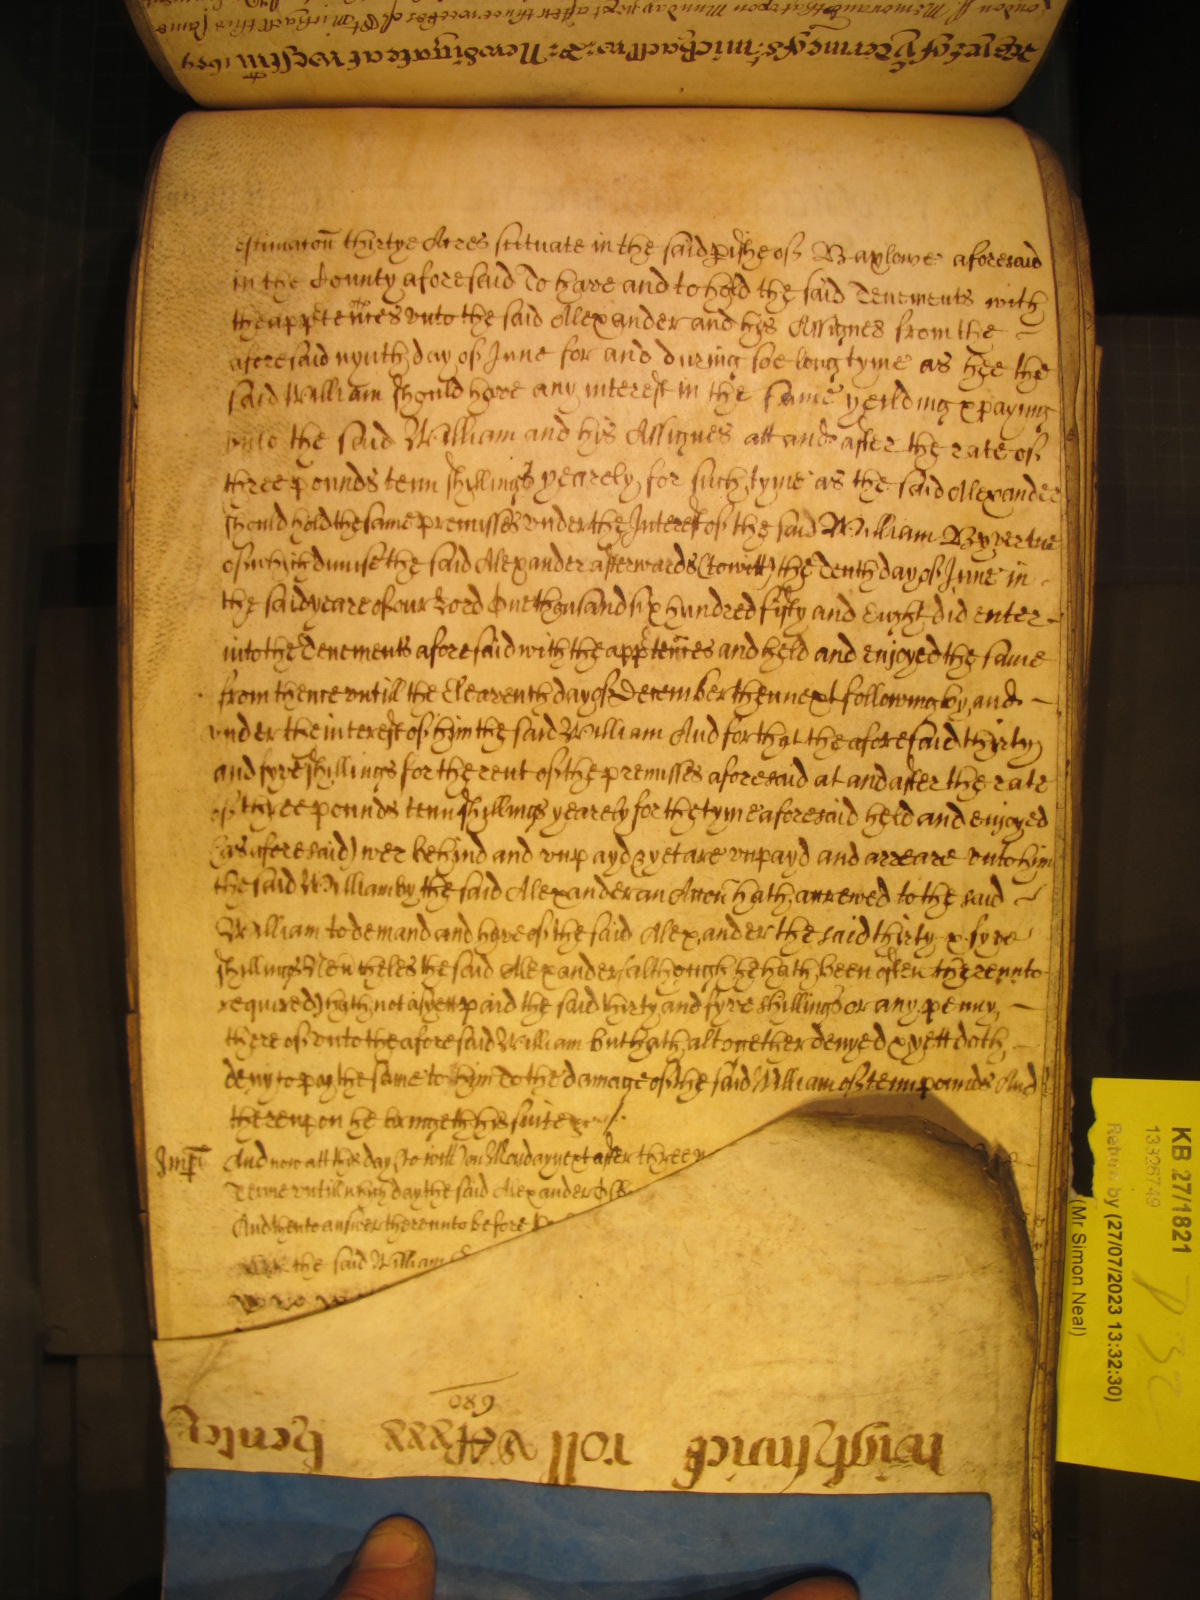 London ss Memorandum that upon Munday next after three weekes of St Michaell this same
As yet of the terme of St Michaell wit: R: Newdigate at Westm 1659
estimacōn thirtye Acres scituate in the said pishe of Barlowe aforesaid
in the County aforesaid To have and to hold the said Tenements with
the apptences unto the said Alexander and his Assignes from the
aforesaid nynth day of June for and during soe long tyme as hee the
said William should have any interest in the same yeilding & paying
unto the said William and his Assignes att and after the rate of
three pounds tenn shillings yearely for such tyme as the said Alexander
should hold the same premisses under the Interest of the said William By vertue
of which dimise the said Alexander afterwards (to witt) the Tenth day of June in
the said yeare of our Lord One thousand six hundred fifty and Eight did enter
into the Tenements aforesaid with the apptences and held and enjoyed the same
from thence untill the Eleaventh day of December then next following by and
under the interest of him the said William And for that the aforesaid thirty
and fyve shillings for the rent of the premisses aforesaid at and after the rate
of three pounds tenn shillings yearely for the tyme aforesaid held and enjoyed
(as aforesaid) wer behind and unpayd & yet are unpayd and arreare unto him
the said William by the said Alexander an Accōn hath accrewed to the said
William to demand and have of the said Alexander the said thirty & fyve
shillings Nevtheles the said Alexander (although he hath been often thereunto
required) hath not as yett paid the said thirty and fyve shillings or any penny
thereof unto the aforesaid William but hath altogether denyed & yett doth
deny to pay the same to him To the damage of the said William of tenn pounds And
thereupon he bringeth his suite &c
Impl And now att this day (to witt) on Monday next after three
Terme untill which day the said Alexander
And then to answer thereunto before
the said William
680
highstreet roll henley
KB 27/1821
13326749
Return by (27/07/2023 13:32:30)
(Mr Simon Neal)
P 32